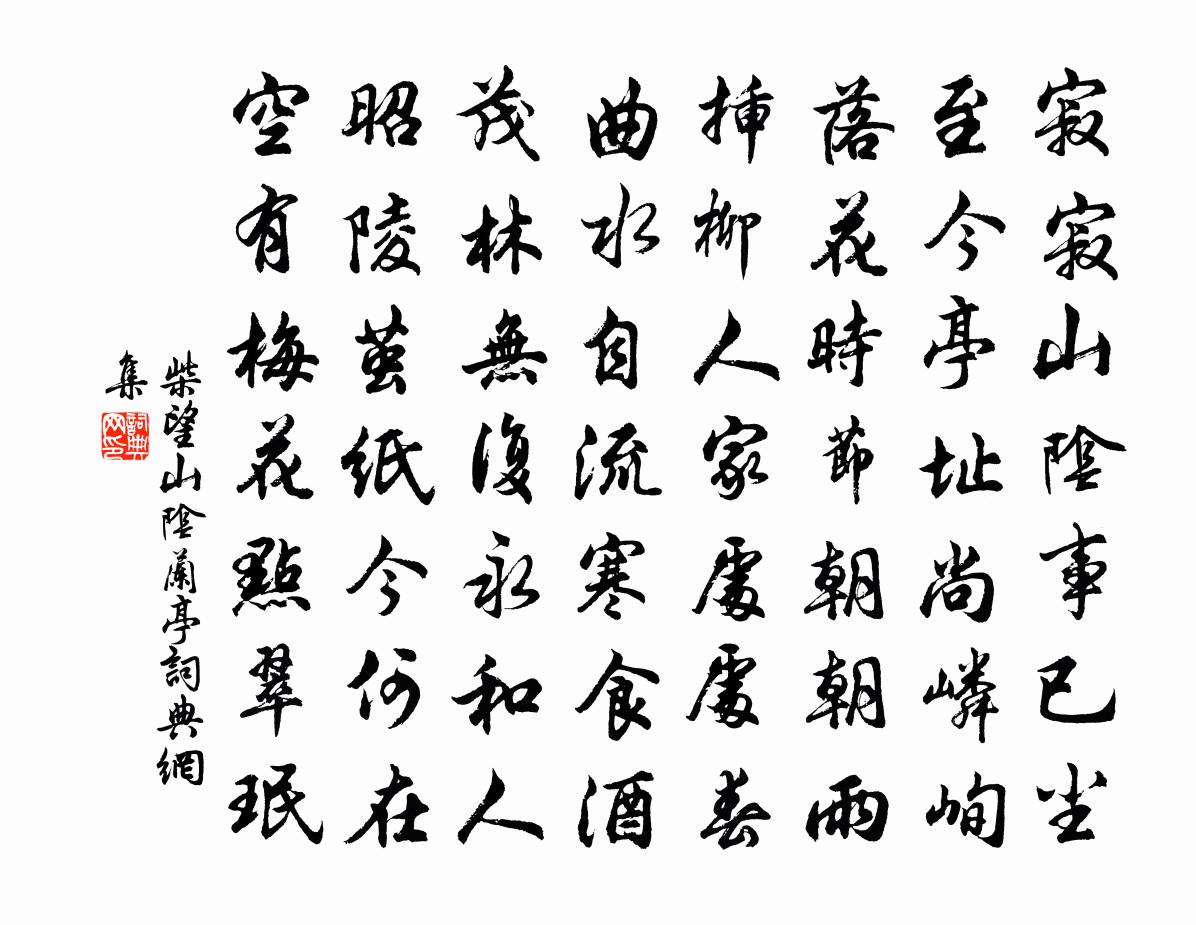 寂寂山陰事已尘
至今亭址尚嶙峋
落花時節朝朝雨
挿柳人家處處春
曲水自流寒食酒
茂林無復永和人
昭陵茧紙今何在
空有梅花點翠珉
柴望山陰蘭亭詞典網
集
詞典
网印